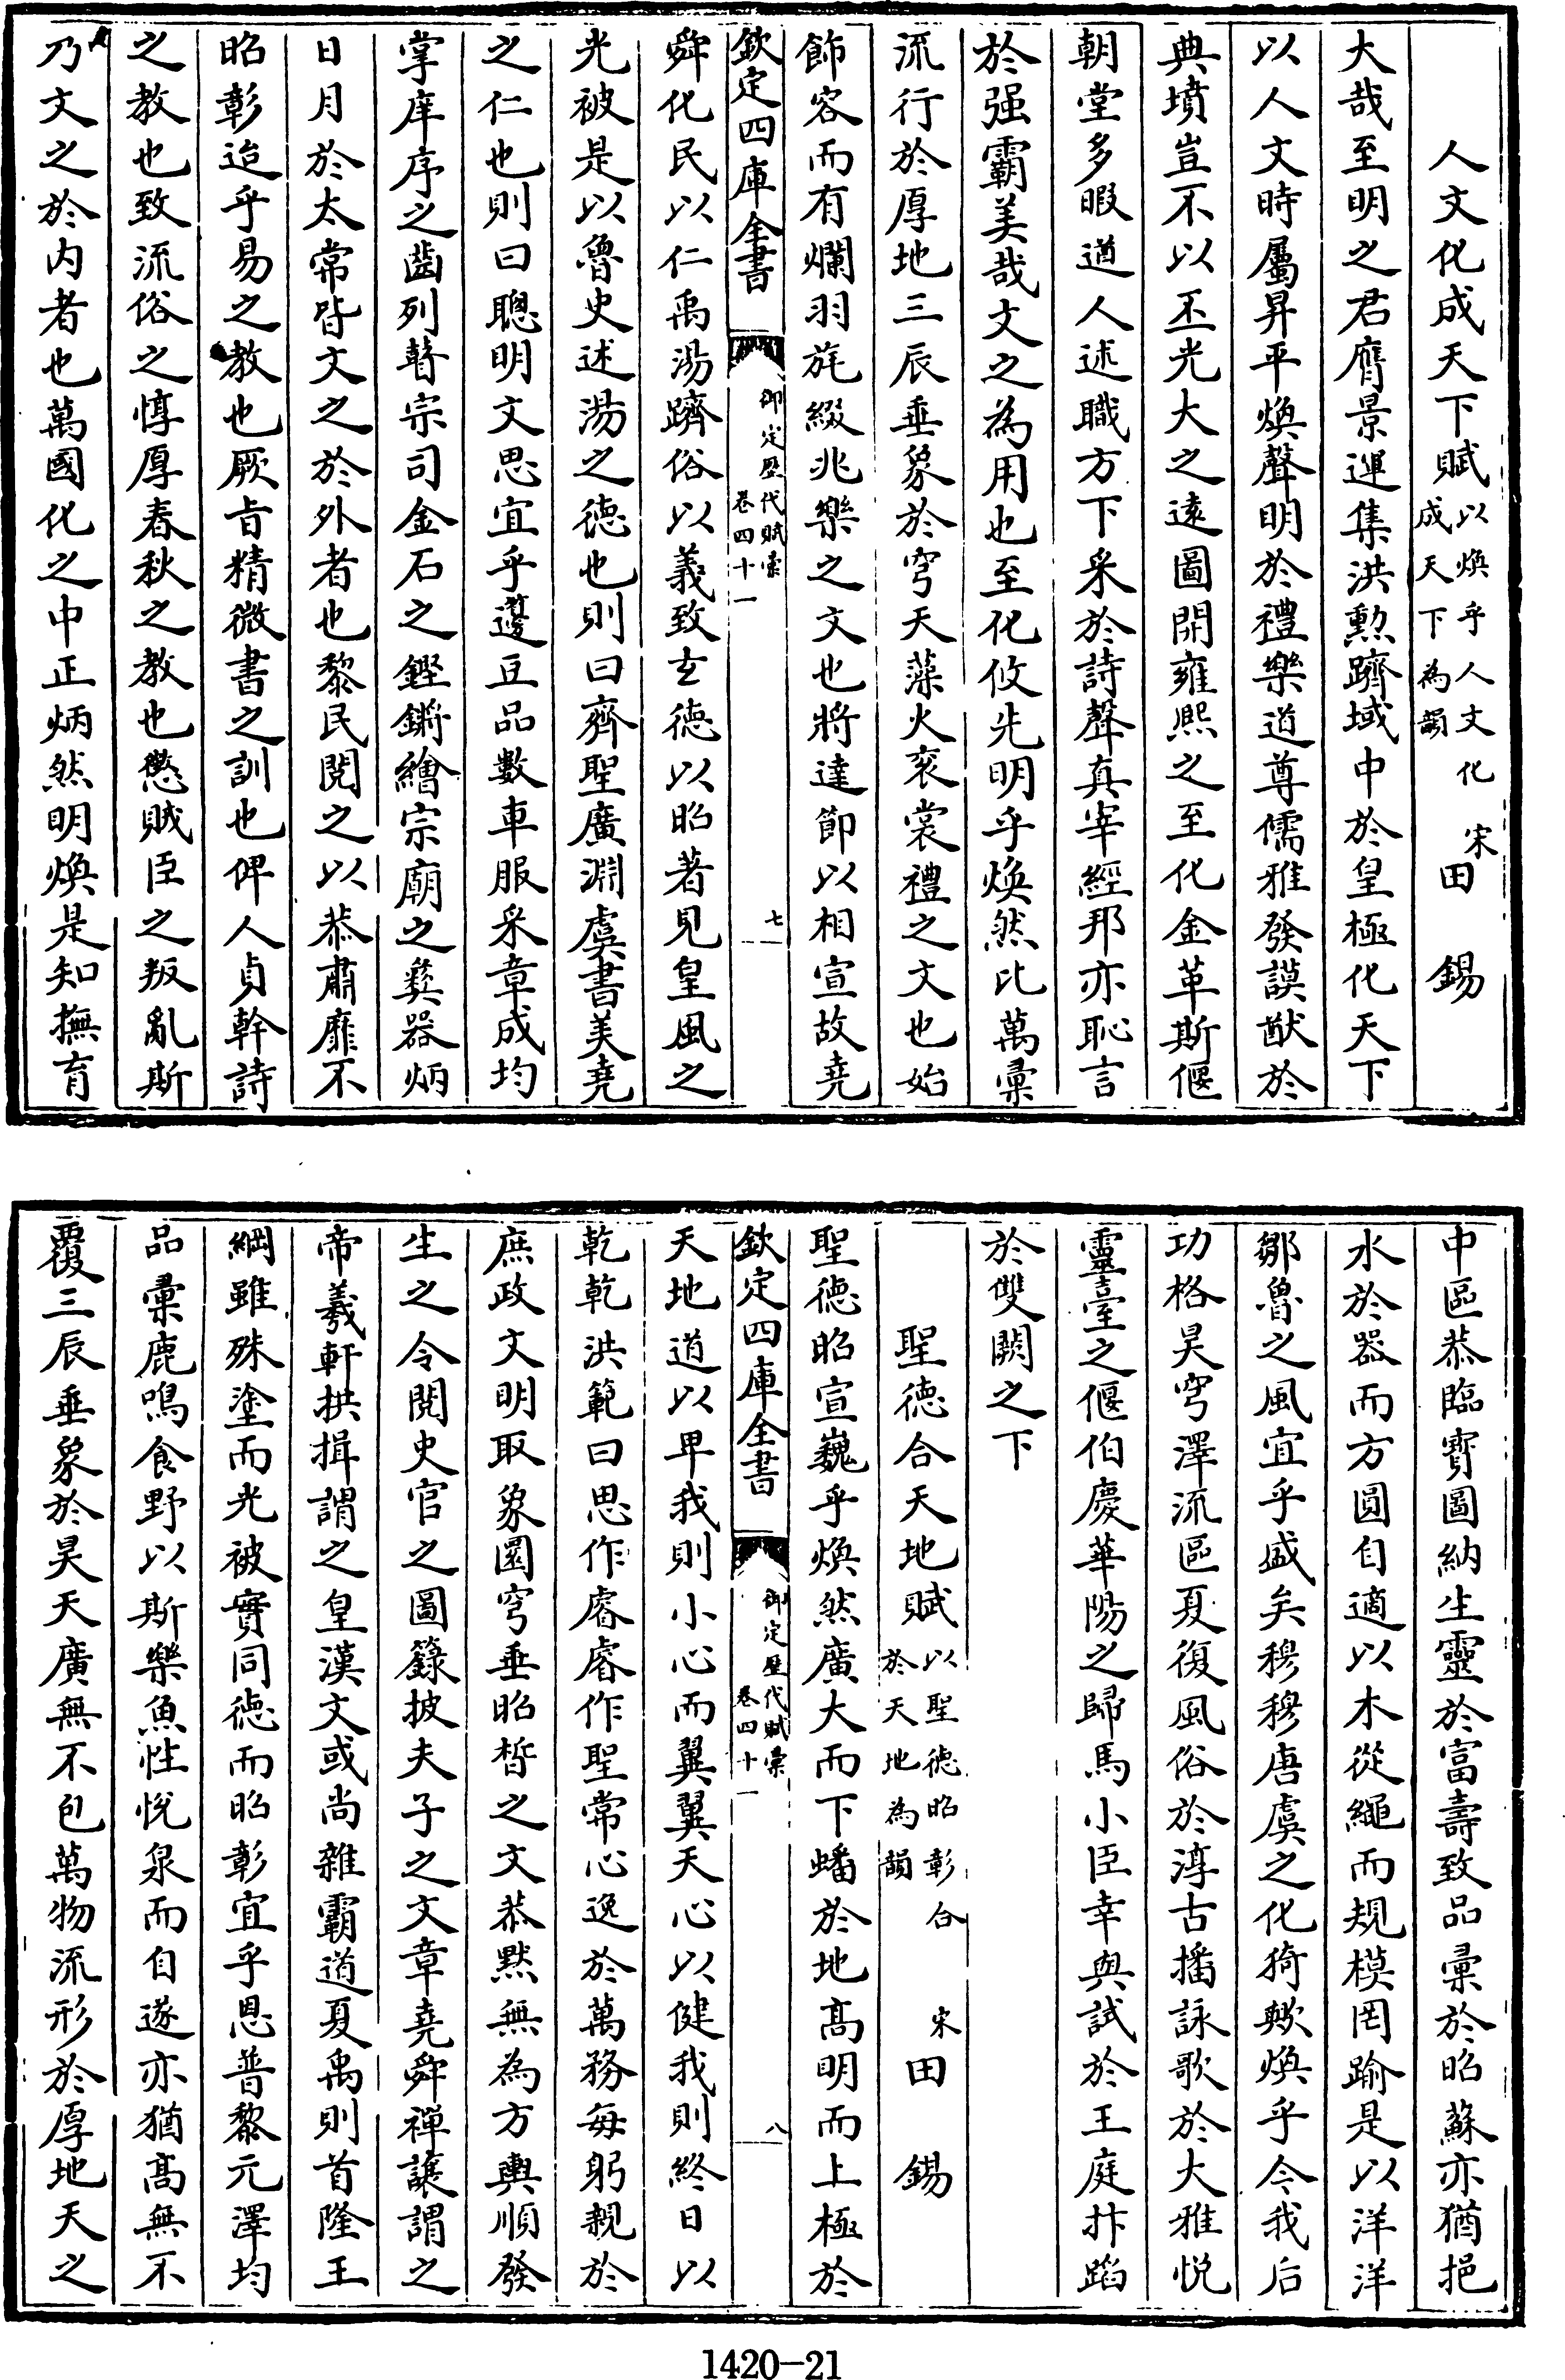 人文化成天下賦以煥乎人文化成天下為韻 宋田錫
大哉至明之君膺景運集洪勲躋域中於皇極化天下
以人文時屬昇平煥聲明於禮樂道尊儒雅發謨猷於
典墳豈不以丕光大之遠圖開雍熙之至化金革斯偃
朝堂多暇遒人述職方下采於詩聲真宰經邦亦恥言
於强霸美哉文之為用也至化攸先明乎煥然比萬彙
流行於厚地三辰垂象於穹天藻火衮裳禮之文也始
飾容而有爛羽旄綴兆樂之文也將達節以相宣故堯
欽定四庫全書 御定歷代賦彙卷四十一 七
舜化民以仁禹湯躋俗以義致玄德以昭著見皇風之
光被是以魯史述湯之德也則曰齊聖廣淵虞書美堯
之仁也則曰聰明文思宜乎籩豆品數車服采章成均
掌庠序之齒列瞽宗司金石之鏗鏘繪宗廟之彝器炳
日月於太常皆文之於外者也黎民閱之以恭肅靡不
昭彰迨乎易之教也厥旨精微書之訓也俾人貞幹詩
之教也致流俗之惇厚春秋之教也懲賊臣之叛亂斯
乃文之於内者也萬國化之中正炳然明煥是知撫育
中區恭臨寶圖納生靈於富壽致品彙於昭蘇亦猶挹
水於器而方圓自適以木從繩而規模罔踰是以洋洋
鄒魯之風宜乎盛矣穆穆唐虞之化猗歟煥乎今我后
功格昊穹澤流區夏復風俗於淳古播詠歌於大雅悦
靈臺之偃伯慶華陽之歸馬小臣幸與試於王庭抃蹈
於雙闕之下
聖德合天地賦以聖德昭彰合於天地為韻 宋田錫
聖德昭宣巍乎煥然廣大而下蟠於地高明而上極於
欽定四庫全書 御定歷代賦彙卷四十一 八
天地道以卑我則小心而翼翼天心以健我則終日以
乾乾洪範曰思作睿睿作聖常心逸於萬務每躬親於
庶政文明取象圜穹垂昭晢之文恭黙無為方輿順發
生之令閱史官之圖籙披夫子之文章堯舜禪讓謂之
帝羲軒拱揖謂之皇漢文或尚雜霸道夏禹則首隆王
綱雖殊塗而光被實同德而昭彰宜乎恩普黎元澤均
品彙鹿鳴食野以斯樂魚性悦泉而自遂亦猶高無不
覆三辰垂象於昊天廣無不包萬物流形於厚地天之
1420-21